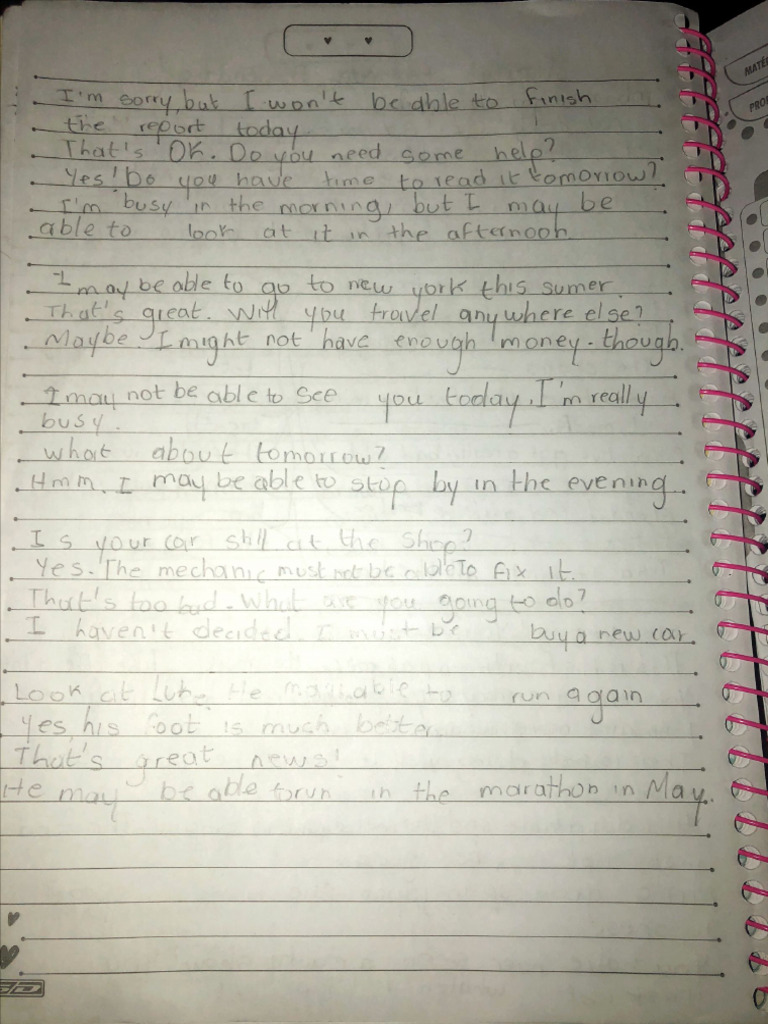 I'm sorry, but I won't be able to finish
the report today
That's OK. Do you need some help?
Yes! Do you have time to read it tomorrow?
I'm busy in the morning, but I may be
able to look at it in the afternoon
I may be able to go to new york this sumer.
That's great. Will you travel anywhere else?
Maybe. I might not have enough money. though.
I may not be able to see you today. I'm really
busy.
what about tomorrow?
Hmm. I may be able to stop by in the evening
Is your car still at the shop?
Yes. The mechanic must not be able to fix it.
That's too bad. What are you going to do?
I haven't decided. I must be buy a new car
Look at Luke. He may able to run again
Yes, his foot is much better.
That's great news!
He may be able to run in the marathon in May.
MATÉ
PRO